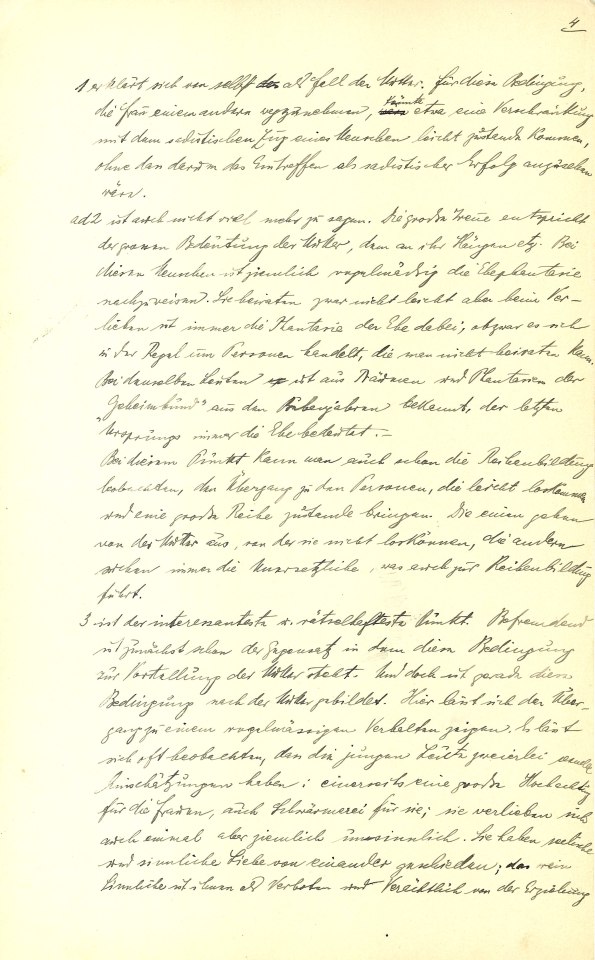 4
1 erklärt sich von selbst das als Fall der Mutter. Für diese Bedingung,
die Frau einem andern wegzunehmen, könnte etwa eine Verschränkung
mit dem sadistischen Zug eines Menschen leicht zustande kommen,
ohne dass darum das Eintreffen als sadistischer Erfolg anzusehen
wäre.
ad 2 ist auch nicht viel mehr zu sagen. Die grosse Treue entspricht
der grossen Bedeutung der Mutter, dem an ihr Hängen etz. Bei
diesen Menschen ist ziemlich regelmässig die Ehephantasie
nachzuweisen. Sie heiraten zwar nicht leicht aber beim Ver-
lieben ist immer die Phantasie der Ehe dabei; obzwar es sich
in der Regel um Personen handelt, die man nicht heiraten kann.
Bei denselben Leuten ist aus Träumen und Phantasien der
„Geheimbund" aus den Bubenjahren bekannt, der letzten
Ursprungs immer die Ehe bedeutet. –
Bei diesem Punkt kann man auch schon die Reihenbildung
beobachten, den Übergang zu den Personen, die leicht loskommen
und eine grosse Reihe zustande bringen. Die einen gehen
von der Mutter aus, von der sie nicht loskönnen, die andern
suchen immer die Unersetzliche, was auch zur Reihenbildung
führt.
3 ist der interessanteste u. rätselhafteste Punkt. Befremdend
ist zunächst schon der Gegensatz in dem diese Bedingung
zur Vorstellung der Mutter steht. Und doch ist gerade diese
Bedingung nach der Mutter gebildet. Hier lässt sich der Über-
gang zu einem regelmässigen Verhalten zeigen. Es lässt
sich oft beobachten, dass die jungen Leute zweierlei
Einschätzungen haben: einerseits eine grosse Hochachtung
für die Frauen, auch Schwärmerei für sie; sie verlieben sich
auch einmal aber ziemlich unsinnlich. Sie haben seelische
und sinnliche Liebe von einander geschieden; das rein
Sinnliche ist ihnen als Verboten und Verächtlich von der Erziehung